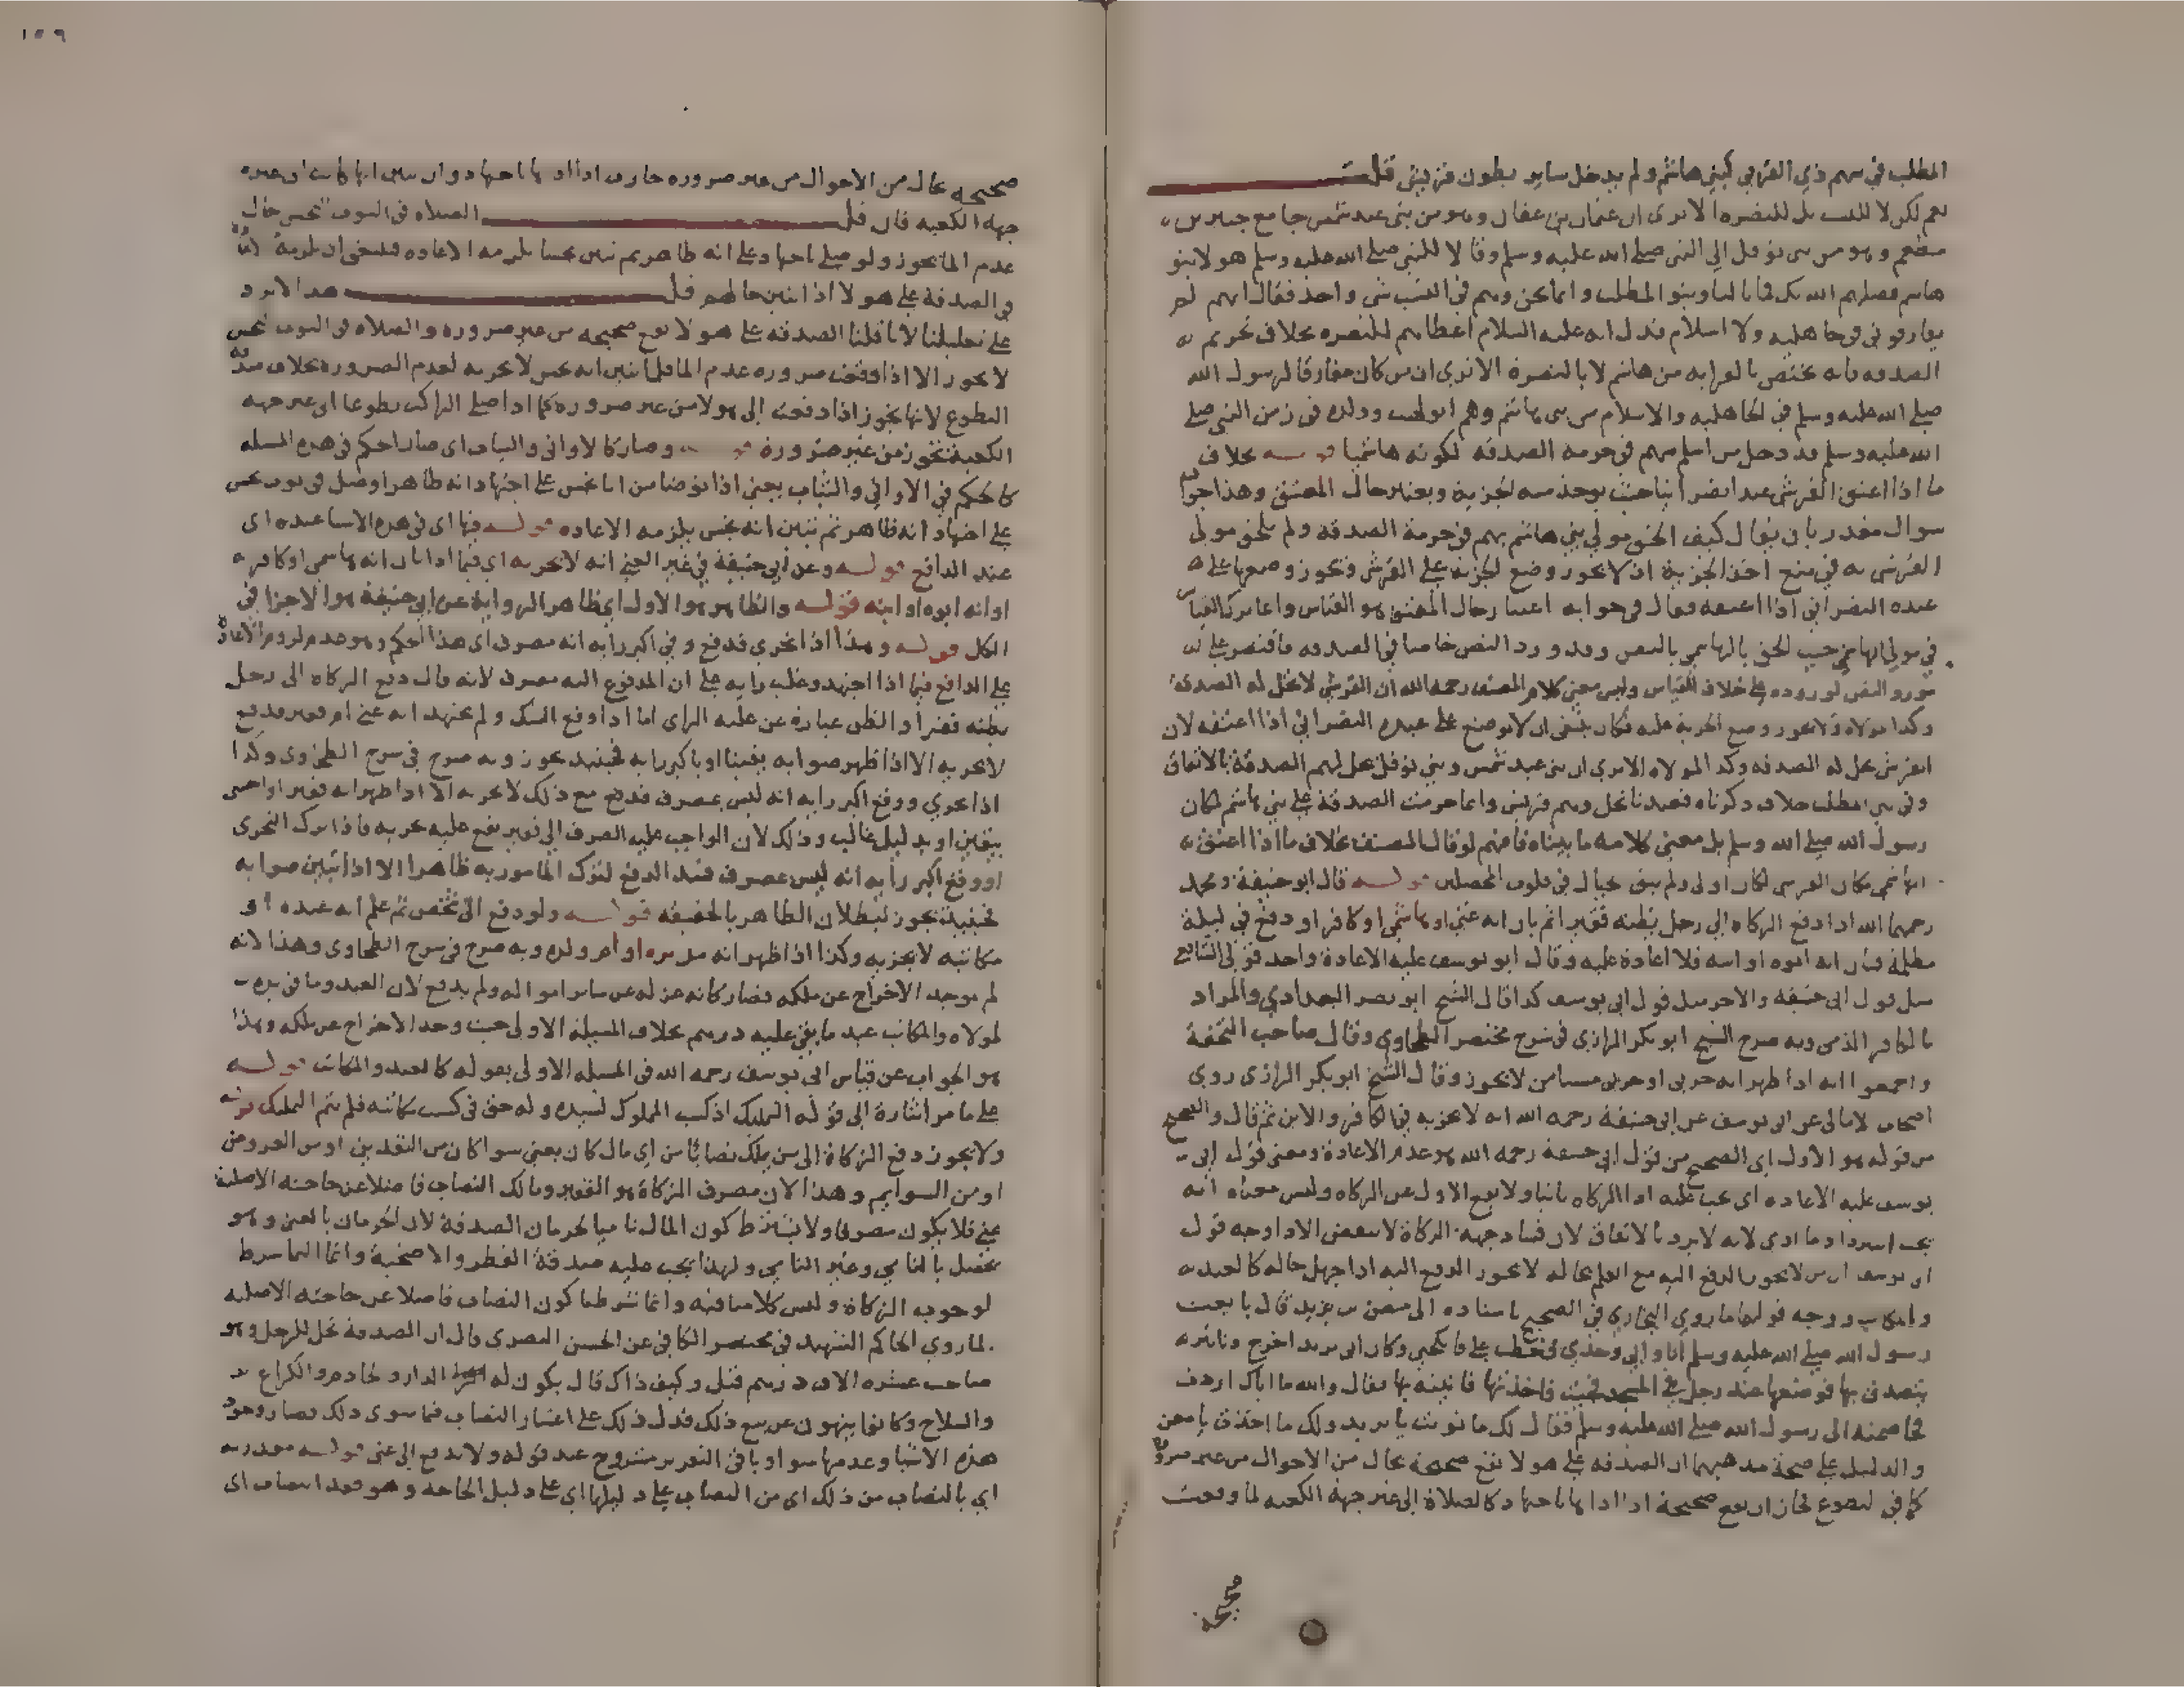 المطلب في سهم ذي القربى كبني هاشم ولم يدخل ساير بطون قريش قلت
نعم لكن لا للنسب بل للنصرة الا ترى ان عثمان بن عفان وهو من بني عبد شمس جا مع جبير بن
مطعم وهو من بني نوفل الى النبي صلى الله عليه وسلم وقالا للنبي صلى الله عليه وسلم هولا بنو
هاشم فضلهم الله بك فما بالنا وبنو المطلب وانما نحن وهم في النسب شي واحد فقال انهم لم
يفارقوني في جاهلية ولا اسلام فدل انه عليه السلام اعطاهم للنصرة بخلاف تحريم
الصدقه فانه يختص بالقرابه من هاشم لا بالنصرة الا ترى ان من كان مفارقا لرسول الله
صلى الله عليه وسلم في الجاهلية والاسلام من بني هاشم وهم ابو لهب وولده في زمن النبي صلى
الله عليه وسلم قد دخل من اسلم منهم في حرمة الصدقه لكونه هاشميا قوله بخلاف
ما اذا اعتق القرشي عبدا نصرانيا حيث يوخذ منه الجزية ويعتبر حال المعتق وهذا جواب
سوال مقدر بان يقال كيف الحق مولى بني هاشم بهم في حرمة الصدقه ولم يلحق مولى
القرشي به في منع اخذ الجزية اذ لا يجوز وضع الجزية على القرشي ويجوز وضعها على
عبده النصراني اذا اعتقه فقال في جوابه اعتبار حال المعتق هو القياس وانما تركنا القياس
في مولى الهاشمي حيث الحق بالهاشمي بالنص وقد ورد النص خاصا في الصدقه فاقتصر على
مورد النص لوروده على خلاف القياس وليس معنى كلام المصنف رحمه الله ان القرشي لا تحل له الصدقة
وكذا مولاه ولا يجوز وضع الجزية عليه فكان ينبغي ان لا توضع على عبده النصراني اذا اعتقه لان
القرشي تحل له الصدقه وكذا لمولاه الا ترى ان بني عبد شمس وبني نوفل تحل لهم الصدقة بالاتفاق
وفي بني المطلب خلاف ذكرناه فعندنا تحل وهم قريش وانما حرمت الصدقة على بني هاشم لمكان
رسول الله صلى الله وسلم بل معنى كلامه ما بيناه فافهم لو قال المصنف بخلاف ما اذا اعتق
الاعجمي مكان القرشي لكان اولى ولم يبق خيال في قلوب المحصلين قوله قال ابو حنيفة ومحمد
رحمهما الله اذا دفع الزكاه الى رجل يظنه فقيرا ثم بان انه غني او هاشمي او كافر او دفع في ليلة
مظلمة فبان انه ابوه او ابنه فلا اعادة عليه وقال ابو يوسف عليه الاعادة واحد قولي الشافعي
مثل قول ابي حنيفه والاخر مثل قول ابي يوسف كذا قال الشيخ ابو نصر البغدادي والمراد
بالكافر الذمي وبه صرح الشيخ ابو بكر الرازي في شرح مختصر الطحاوي وقال صاحب التحفة
واجمعوا انه اذا ظهر انه حربي او حربي مستامن لا يجوز وقال الشيخ ابو بكر الرازي روى
اصحاب الامالي عن ابي يوسف عن ابي حنيفة رحمه الله انه لا يجزيه في الكافر والابن ثم قال والصحيح
من قوله هو الاول اي الصحيح من قول ابي حنيفة رحمه الله هو عدم الاعادة ومعنى قول ابي
يوسف عليه الاعاده اي يجب عليه ادا الزكاه ثانيا ولا يقع الاول عن الزكاه وليس معناه انه
يجب استرداد ما ادى لانه لا يرد بالاتفاق لان فساد جهة الزكاة لا ينقض الادا وجه قول
ابي يوسف ان من لا يجوز الدفع اليه مع العلم بحاله لا يجوز الدفع اليه اذا جهل حاله كالعبد
والمكاتب ووجه قولهما ما روى البخاري في الصحيح باسناده الى معن بن يزيد قال بايعت
رسول الله صلى الله عليه وسلم انا وابي وجدي وخطب علي فانكحني وكان ابي يزيد اخرج دنانير
يتصدق بها فوضعها عند رجل في المسجد فجيت فاخذتها فاتيته بها فقال والله ما اياك اردت
فخاصمته الى رسول الله صلى الله عليه وسلم فقال لك ما نويت يا يزيد ولك ما اخذت يا معن
والدليل على صحة مذهبهما ان الصدقه على هولا تقع صحيحة بحال من الاحوال من غير ضرورة
كما في التطوع فجاز ان تقع صحيحة اذا اداها باجتهاد كالصلاة الى غير جهة الكعبه لما وقعت
صحيحة
١٥٩
صحيحه بحال من الاحوال من غير ضروره جازت اذا اداها باجتهاد وان تبين انها كانت الى غير
جهة الكعبه فان قلت الصلاة في الثوب النجس حال
عدم الما يجوز ولو صلى باجتهاد على انه طاهر ثم تبين نجسا يلزمه الاعاده فينبغي ان يلزمه ايضا
في الصدقة على هولا اذا تبين حالهم قلت هذا لا يرد
على تعليلنا لانا قلنا الصدقه على هولا تقع صحيحه من غير ضروره والصلاه في الثوب النجس
لا يجوز الا اذا وقعت ضروره عدم الما فلما تبين انه نجس لا يجزيه لعدم الضرورة بخلاف صدقة
التطوع لانها يجوز اذا دفعت الى هولا من غير ضروره كما اذا صلى الراكب تطوعا الى غير جهة
الكعبة تجوز من غير ضرورة قوله وصار كالاواني والثياب اي صار الحكم في هذه المسلة
كالحكم في الاواني والثياب يعني اذا توضا من انا نجس على اجتهاد انه طاهر او صلى في ثوب نجس
على اجتهاد انه طاهر ثم تبين انه نجس يلزمه الاعاده قوله فيها اي في هذه الاشيا عنده اي
عند الدافع قوله وعن ابي حنيفة في غير الغني انه لا يجزيه اي فيما اذا بان انه هاشمي او كافر
او انه ابوه او ابنه قوله والظاهر هو الاول اي ظاهر الرواية عن ابي حنيفة هو الاجزا في
الكل قوله وهذا اذا تحرى فدفع وفي اكبر رايه انه مصرف اي هذا الحكم وهو عدم لزوم الاعادة
على الدافع فيما اذا اجتهد وغلب رايه على ان المدفوع اليه مصرف لانه قال دفع الزكاه الى رجل
يظنه فقيرا والظن عبارة عن غلبة الراي اما اذا وقع الشك ولم يجتهد انه غني ام فقير فدفع
لا يجزيه الا اذا ظهر صوابه يقينا او باكبر رايه فحينئذ يجوز وبه صرح في شرح الطحاوي وكذا
اذا تحرى ووقع اكبر رايه انه ليس بمصرف فدفع مع ذلك لا يجزيه الا اذا ظهر انه فقير او اجنبي
بيقين او بدليل غالب وذلك لان الواجب عليه الصرف الى فقير يقع عليه تحريه فاذا ترك التحري
او وقع اكبر رايه انه ليس بمصرف فسد الدفع لترك المامور به ظاهرا الا اذا تبين صوابه
فحينئذ يجوز لبطلان الظاهر بالحقيقه قوله ولو دفع الى شخص ثم علم انه عبده او
مكاتبه لا يجزيه وكذا اذا ظهر انه مدبره او ام ولده وبه صرح في شرح الطحاوي وهذا لانه
لم يوجد الاخراج عن ملكه فصار كانه عزله عن ساير امواله ولم يدفع لان العبد وما في يده
لمولاه والمكاتب عبد ما بقي عليه درهم بخلاف المسيلة الاولى حيث وجد الاخراج عن ملكه وهذا
هو الجواب عن قياس ابي يوسف رحمه الله في المسله الاولى بقوله كالعبد والمكاتب قوله
على ما مر اشارة الى قوله التمليك اذ كسب المملوك لسيده وله حق في كسب مكاتبه فلم يتم التمليك قوله
ولا يجوز دفع الزكاة الى من يملك نصابا من اي مال كان يعني سوا كان من النقدين او من العروض
او من السوايم وهذا لان مصرف الزكاة هو الفقير ومالك النصاب فاضلا عن حاجته الاصلية
غني فلا يكون مصرفا ولا يشترط كون المال ناميا لحرمان الصدقة لان الحرمان بالغنى وهو
يحصل بالنامي وغير النامي ولهذا يجب عليه صدقة الفطر والاضحية وانما النما شرط
لوجوب الزكاة وليس كلامنا فيه وانما شرطنا كون النصاب فاضلا عن حاجته الاصليه
لما روى الحاكم الشهيد في مختصر الكافي عن الحسن البصري قال ان الصدقة تحل للرجل وهو
صاحب عشرة الاف درهم قيل وكيف ذاك قال يكون له الدار والخادم والكراع
والسلاح وكانوا ينهون عن بيع ذلك فدل ذلك على اعتبار النصاب فما سوى ذلك فصار وجود
هذه الاشيا وعدمها سوا وباقي التقرير مشروح عند قوله ولا تدفع الى غني قوله مقدر به
اي بالنصاب من ذلك اي من النصاب على دليلها اي على دليل الحاجه وهو فقد النصاب اي